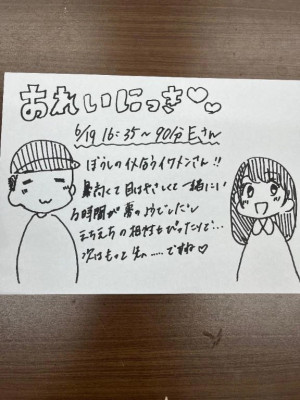 おれいにっき♡♡
6/19 16:35〜90分Eさん
ぼうしの似合うイケメンさん!!
暑くて目はやさしくて一緒にい
る時間が夢のようでした
えちえちの相性もぴったりで…
次はもっと……ですね♡